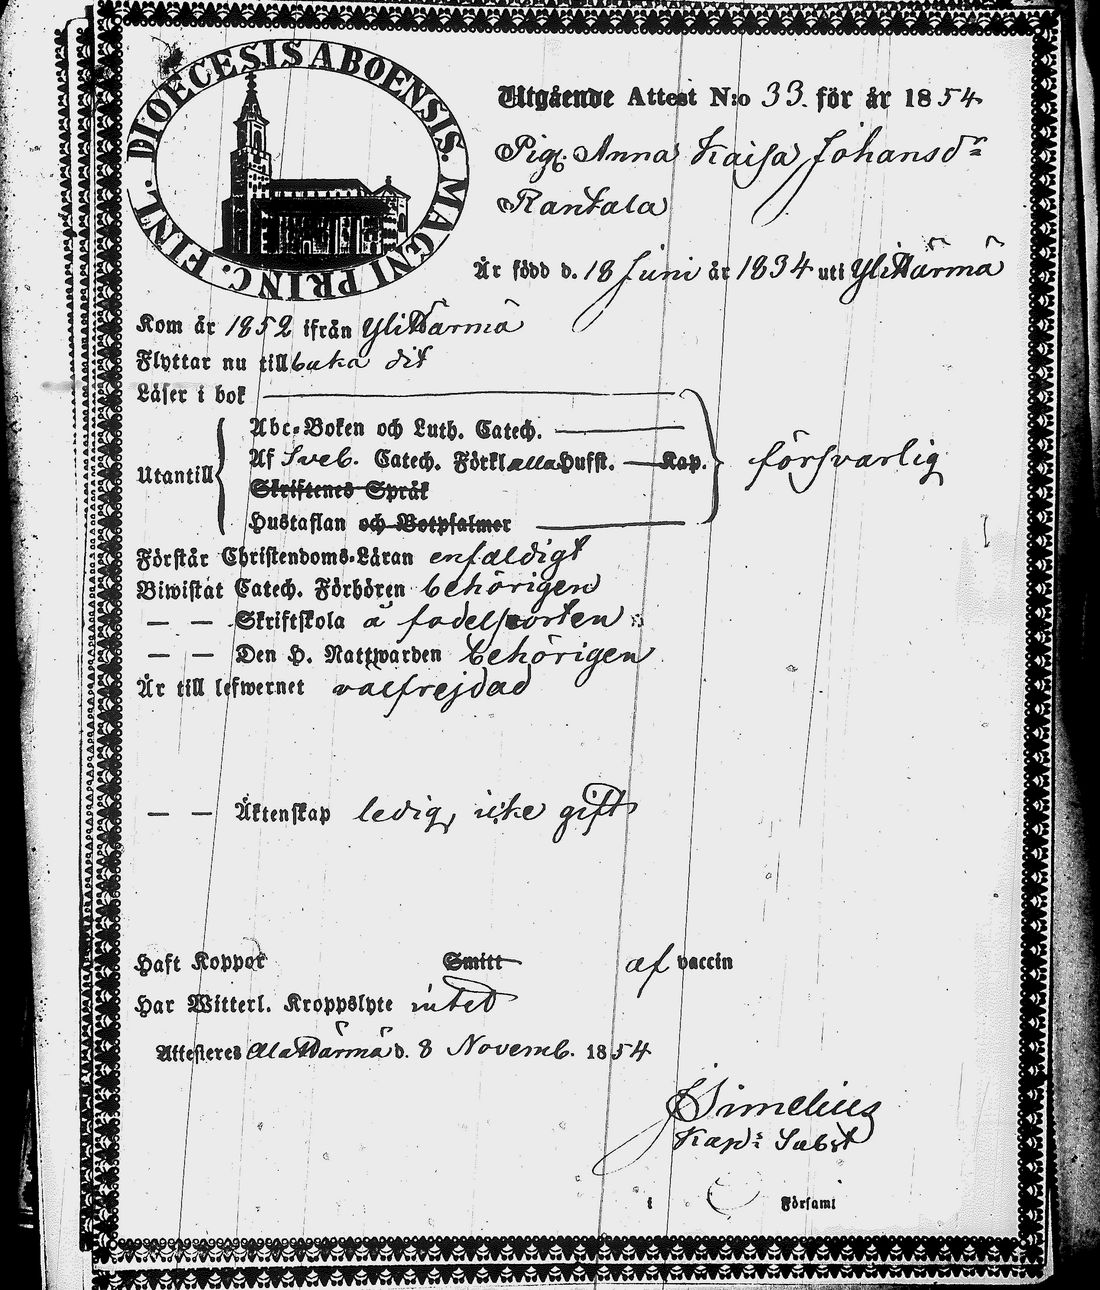 DIOECESIS ABOENSIS. MAGNI PRINC. FINL.
Utgående Attest N:o 33. för år 1854
Pig. Anna Kaisa Johansdr
Rantala
Är född d. 18 Juni år 1834 uti YliHärmä
Kom år 1852 ifrån YliHärmä
Flyttar nu tillbaka dit
Läser i bok
Abc-Boken och Luth. Catech.
Af Sveb. Catech. Förkl alla Hufst. — Kap.
Utantill
försvarlig
Skriftenes Språk
Hustaflan och Botpsalmer
Förstår Christendoms-Läran enfaldigt
Biwistat Catech. Förhören behörigen
— — Skriftskola å fodelseorten
— — Den H. Nattwarden behörigen
Är till lefwernet välfrejdad
— — Äktenskap ledig, icke gift
Haft Koppor Smitt af vaccin
Har Witterl. Kroppslyte intet
Attesteras AlaHärmä d. 8 Novemb. 1854
Simelius
Kap: Subst
i Församl